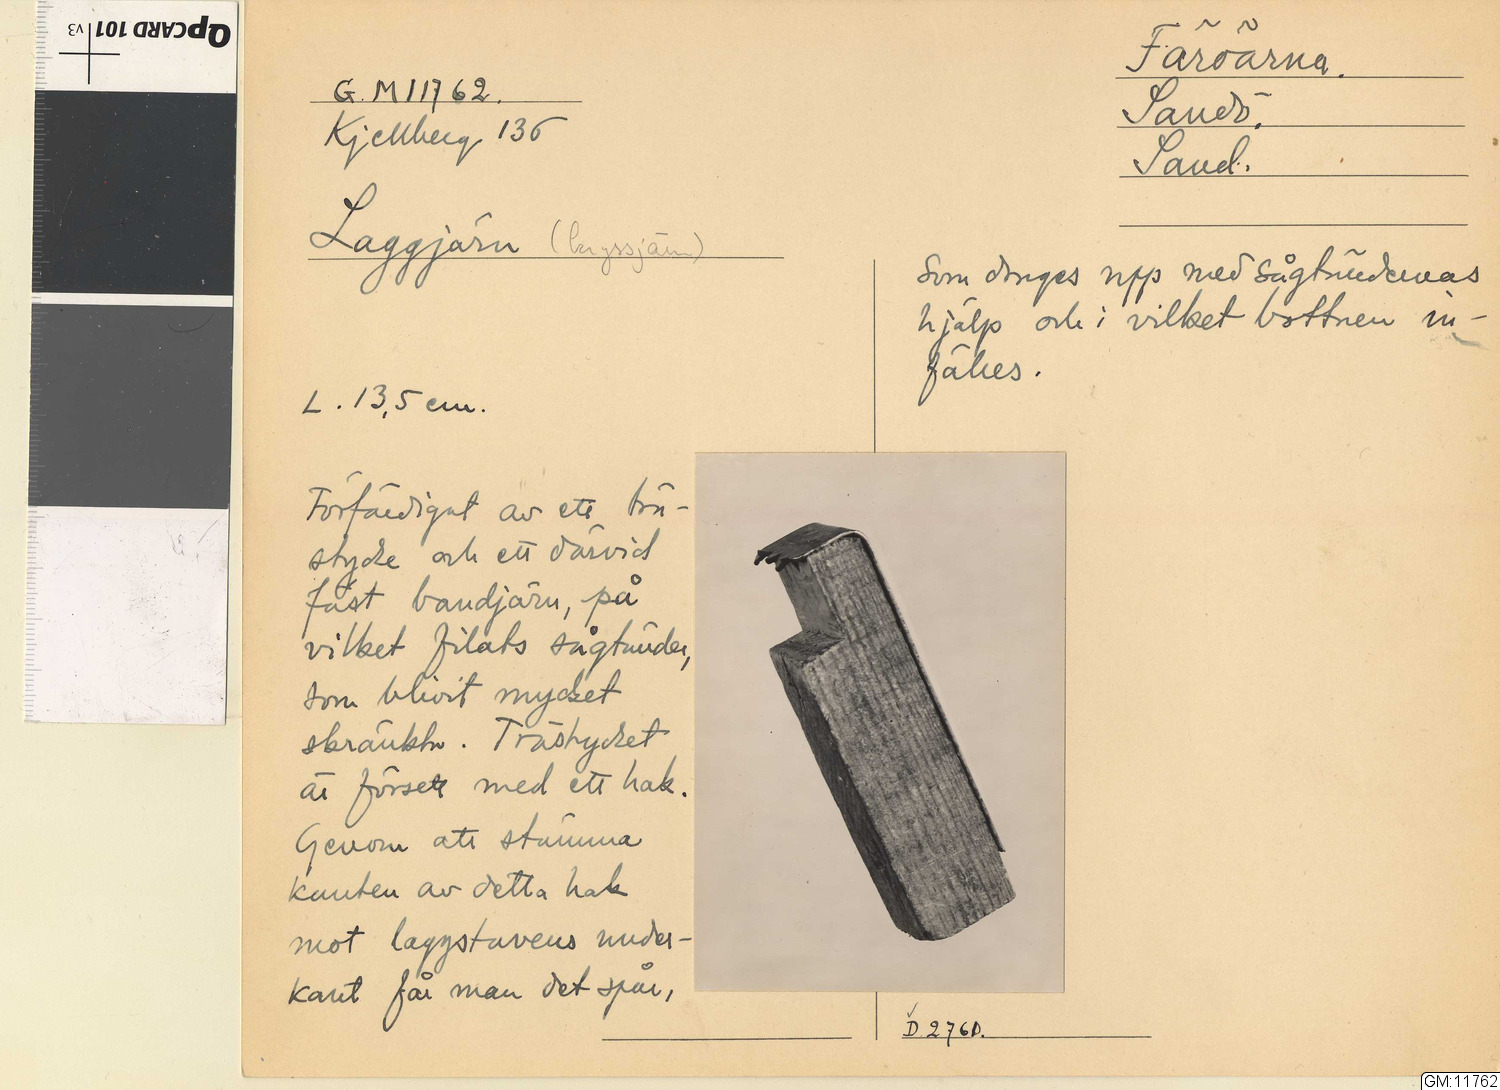 QPCARD 101 v3
G.M 11762.
Kjellberg 136
Laggjärn
L. 13,5 cm.
Förfärdigat av ett trä-
stycke och ett därvid
fäst bandjärn, på
vilket filats sågtänder,
som blivit mycket
skränkta. Trästycket
är försett med ett hak.
Genom att stämma
kanten av detta hak
mot laggstavens under-
kant får man det spår,
Färöarna.
Sandö.
Sand.
som dragas upp med sågtändernas
hjälp och i vilket bottnen in-
fälles.
D 2760.
GM:11762